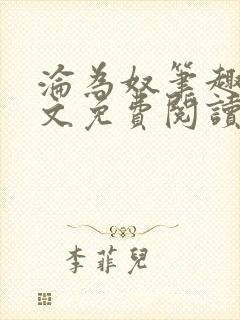 淪為奴筆趣
文免費閱讀
李菲兒